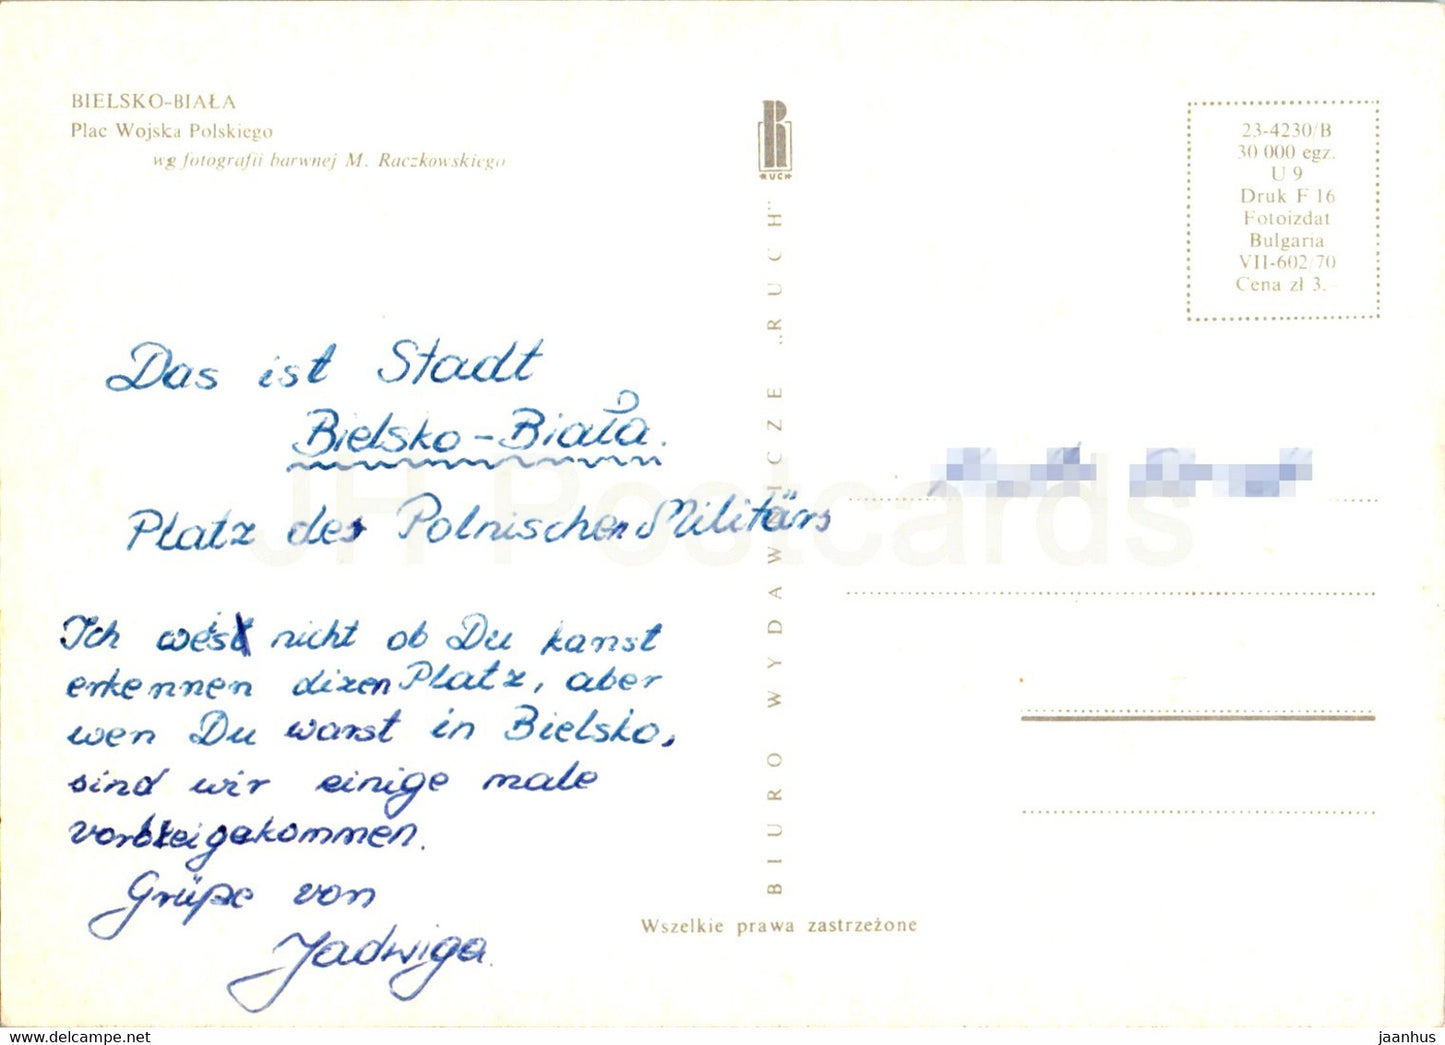 BIELSKO-BIAŁA
Plac Wojska Polskiego
wg fotografii barwnej M. Raczkowskiego
Das ist Stadt
Bielsko-Biała.
Platz des Polnischen Militärs
Ich weis nicht ob Du kanst
erkennen dizen Platz, aber
wen Du warst in Bielsko,
sind wir einige male
vorbeigekommen.
Grüße von
Jadwiga.
RUCH
BIURO WYDAWNICZE „RUCH"
Wszelkie prawa zastrzeżone
23-4230/B
30 000 egz.
U 9
Druk F 16
Fotoizdat
Bulgaria
VII-602/70
Cena zł 3.-
JH Postcards
https://www.delcampe.net
jaanhus